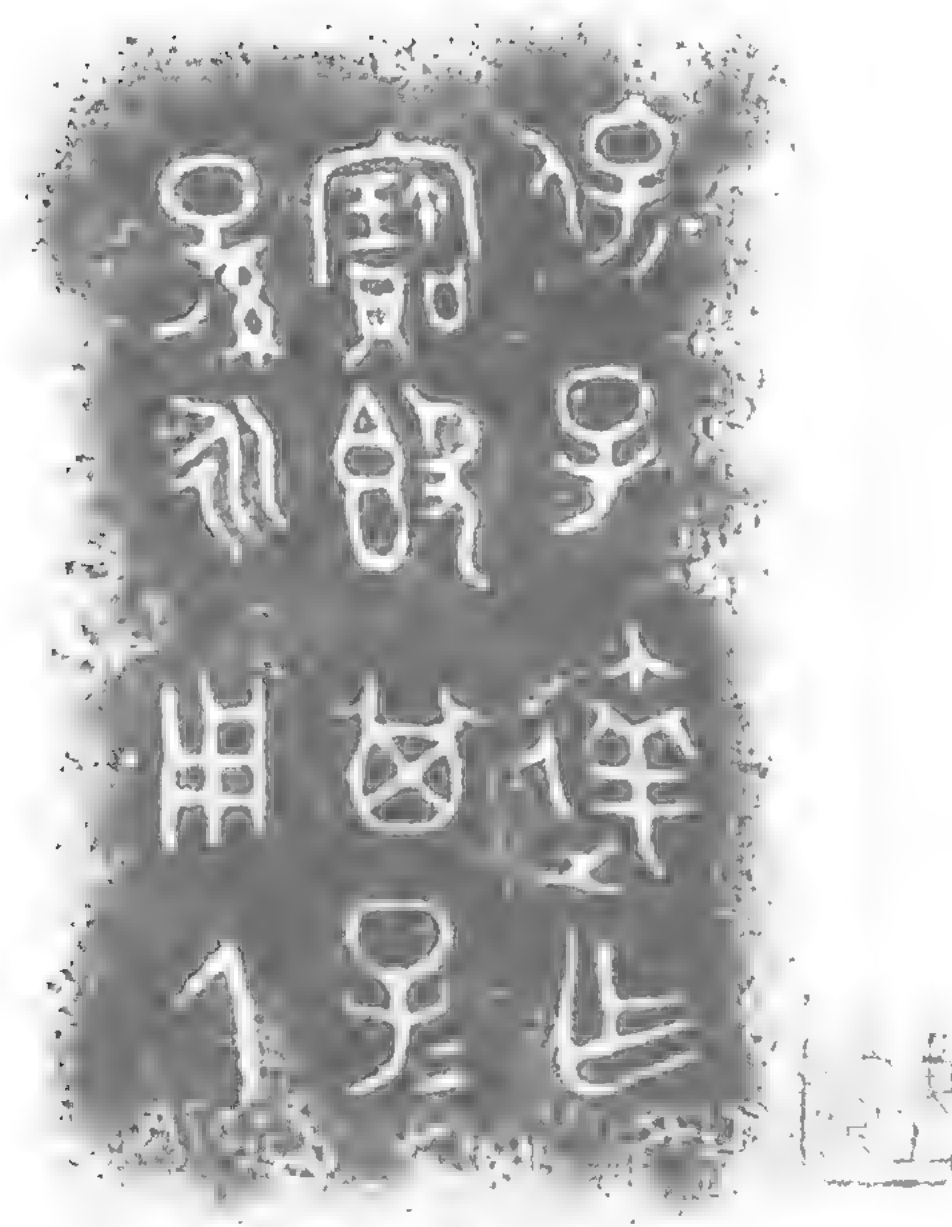 保子達乍
寶𣪘其子=
孫永用